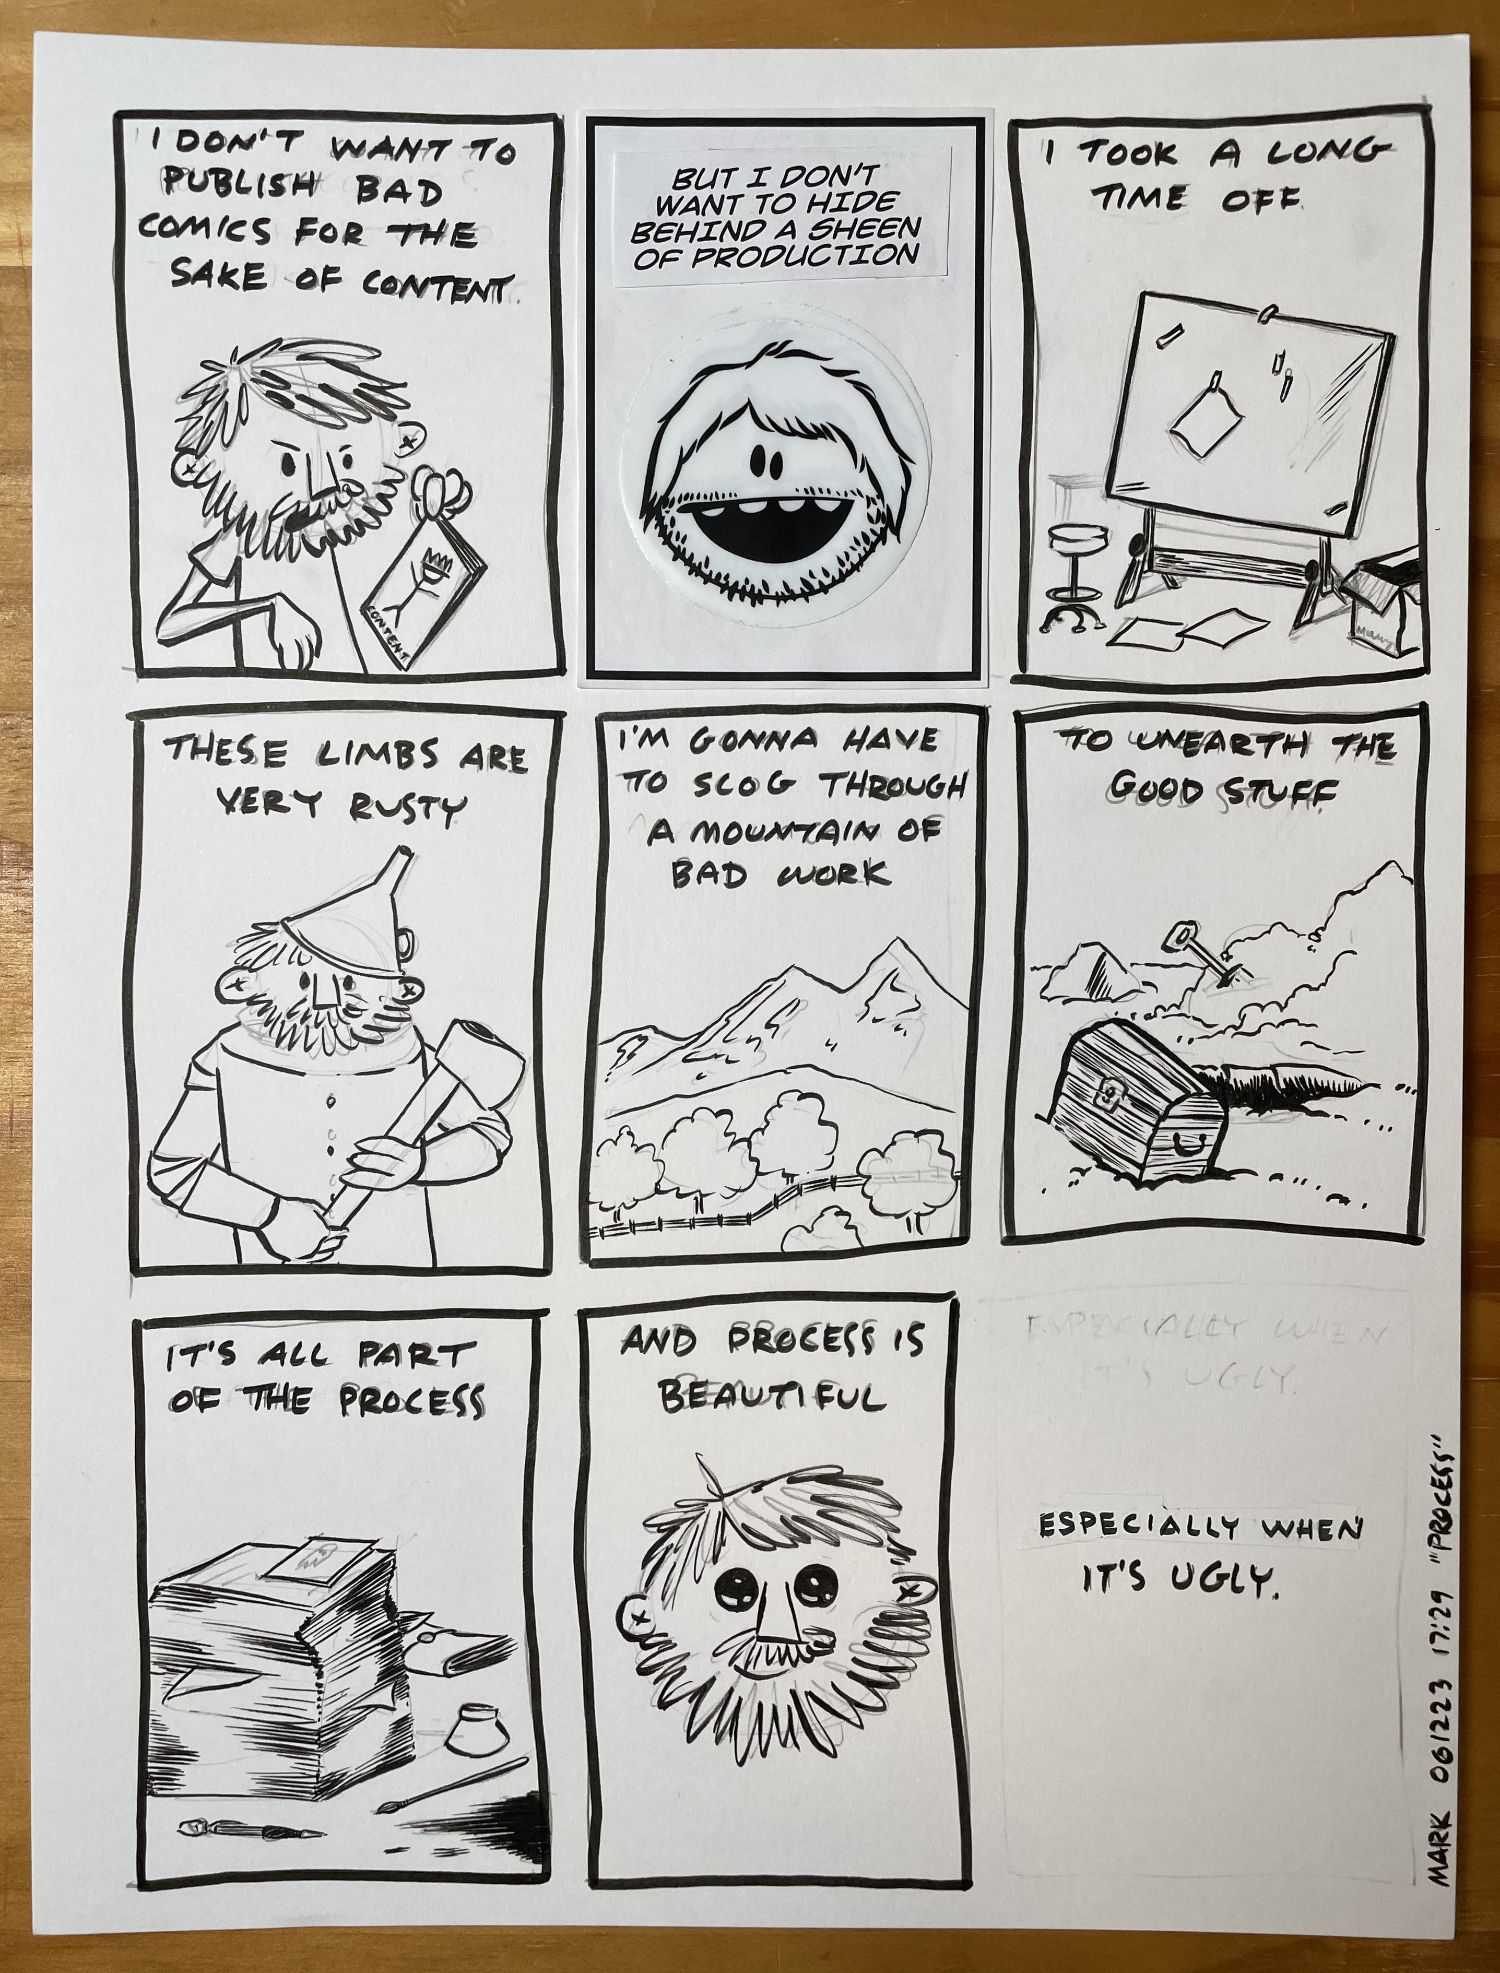 I DON'T WANT TO
PUBLISH BAD
COMICS FOR THE
SAKE OF CONTENT.
CONTENT
BUT I DON'T
WANT TO HIDE
BEHIND A SHEEN
OF PRODUCTION
I TOOK A LONG
TIME OFF.
THESE LIMBS ARE
VERY RUSTY
I'M GONNA HAVE
TO SLOG THROUGH
A MOUNTAIN OF
BAD WORK
TO UNEARTH THE
GOOD STUFF.
IT'S ALL PART
OF THE PROCESS
AND PROCESS IS
BEAUTIFUL
ESPECIALLY WHEN
IT'S UGLY.
ESPECIALLY WHEN
IT'S UGLY.
MARK 061223 17:29 "PROCESS"